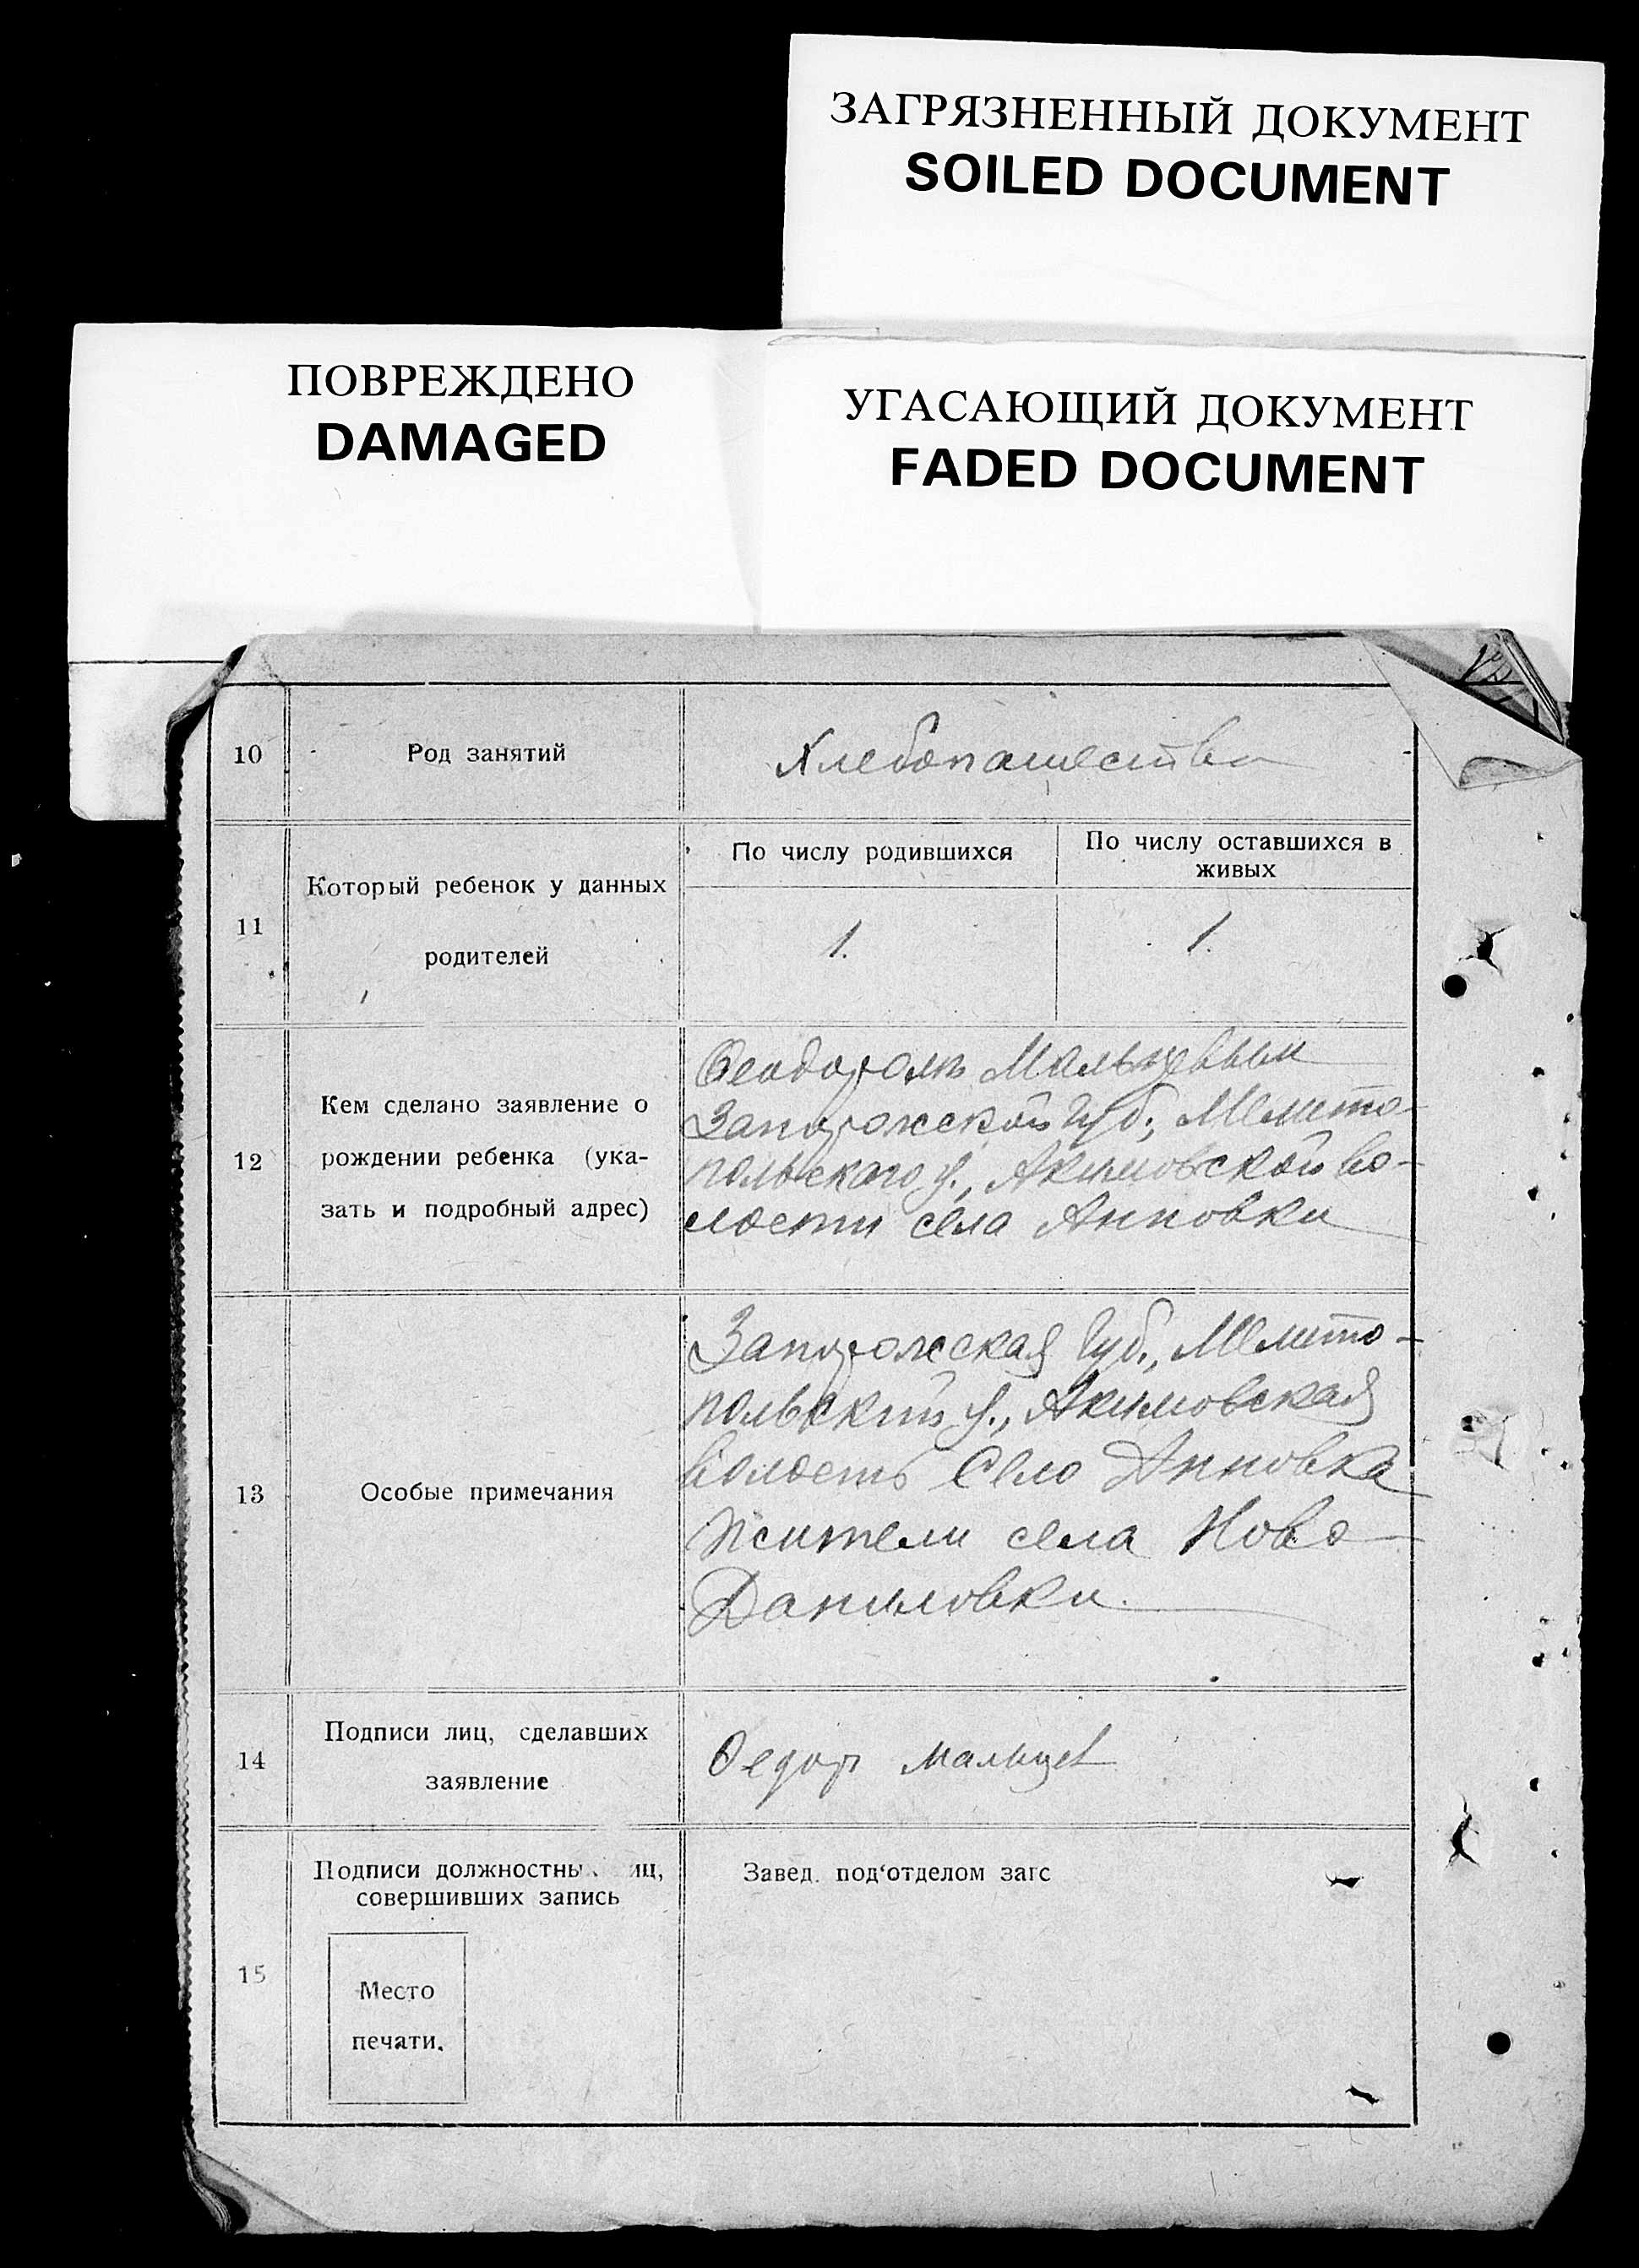 ЗАГРЯЗНЕННЫЙ ДОКУМЕНТ
SOILED DOCUMENT
ПОВРЕЖДЕНО
DAMAGED
УГАСАЮЩИЙ ДОКУМЕНТ
FADED DOCUMENT
10
Род занятий
Хлебопашество
11
Который ребенок у данных
родителей
По числу родившихся
1.
По числу оставшихся в
живых
1.
12
Кем сделано заявление о
рождении ребенка (ука-
зать и подробный адрес)
Феодором Мальцевым
Запорожской Губ., Мелито-
польского у., Акимовской во-
лости села Анновки
13
Особые примечания
Запорожская Губ., Мелито-
польский у., Акимовская
волость Село Анновка
Жители села Ново-
Даниловки.
14
Подписи лиц, сделавших
заявление
Федор Мальцев
15
Подписи должностны иц,
совершивших запись
Место
печати.
Завед. под‘отделом загс